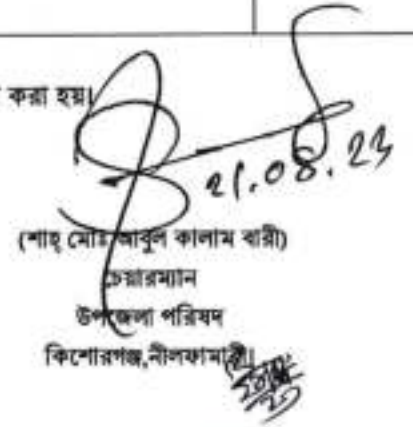 করা হয়।
21.08.23
(শাহ্ মোঃ আবুল কালাম বারী)
চেয়ারম্যান
উপজেলা পরিষদ
কিশোরগঞ্জ,নীলফামারী।